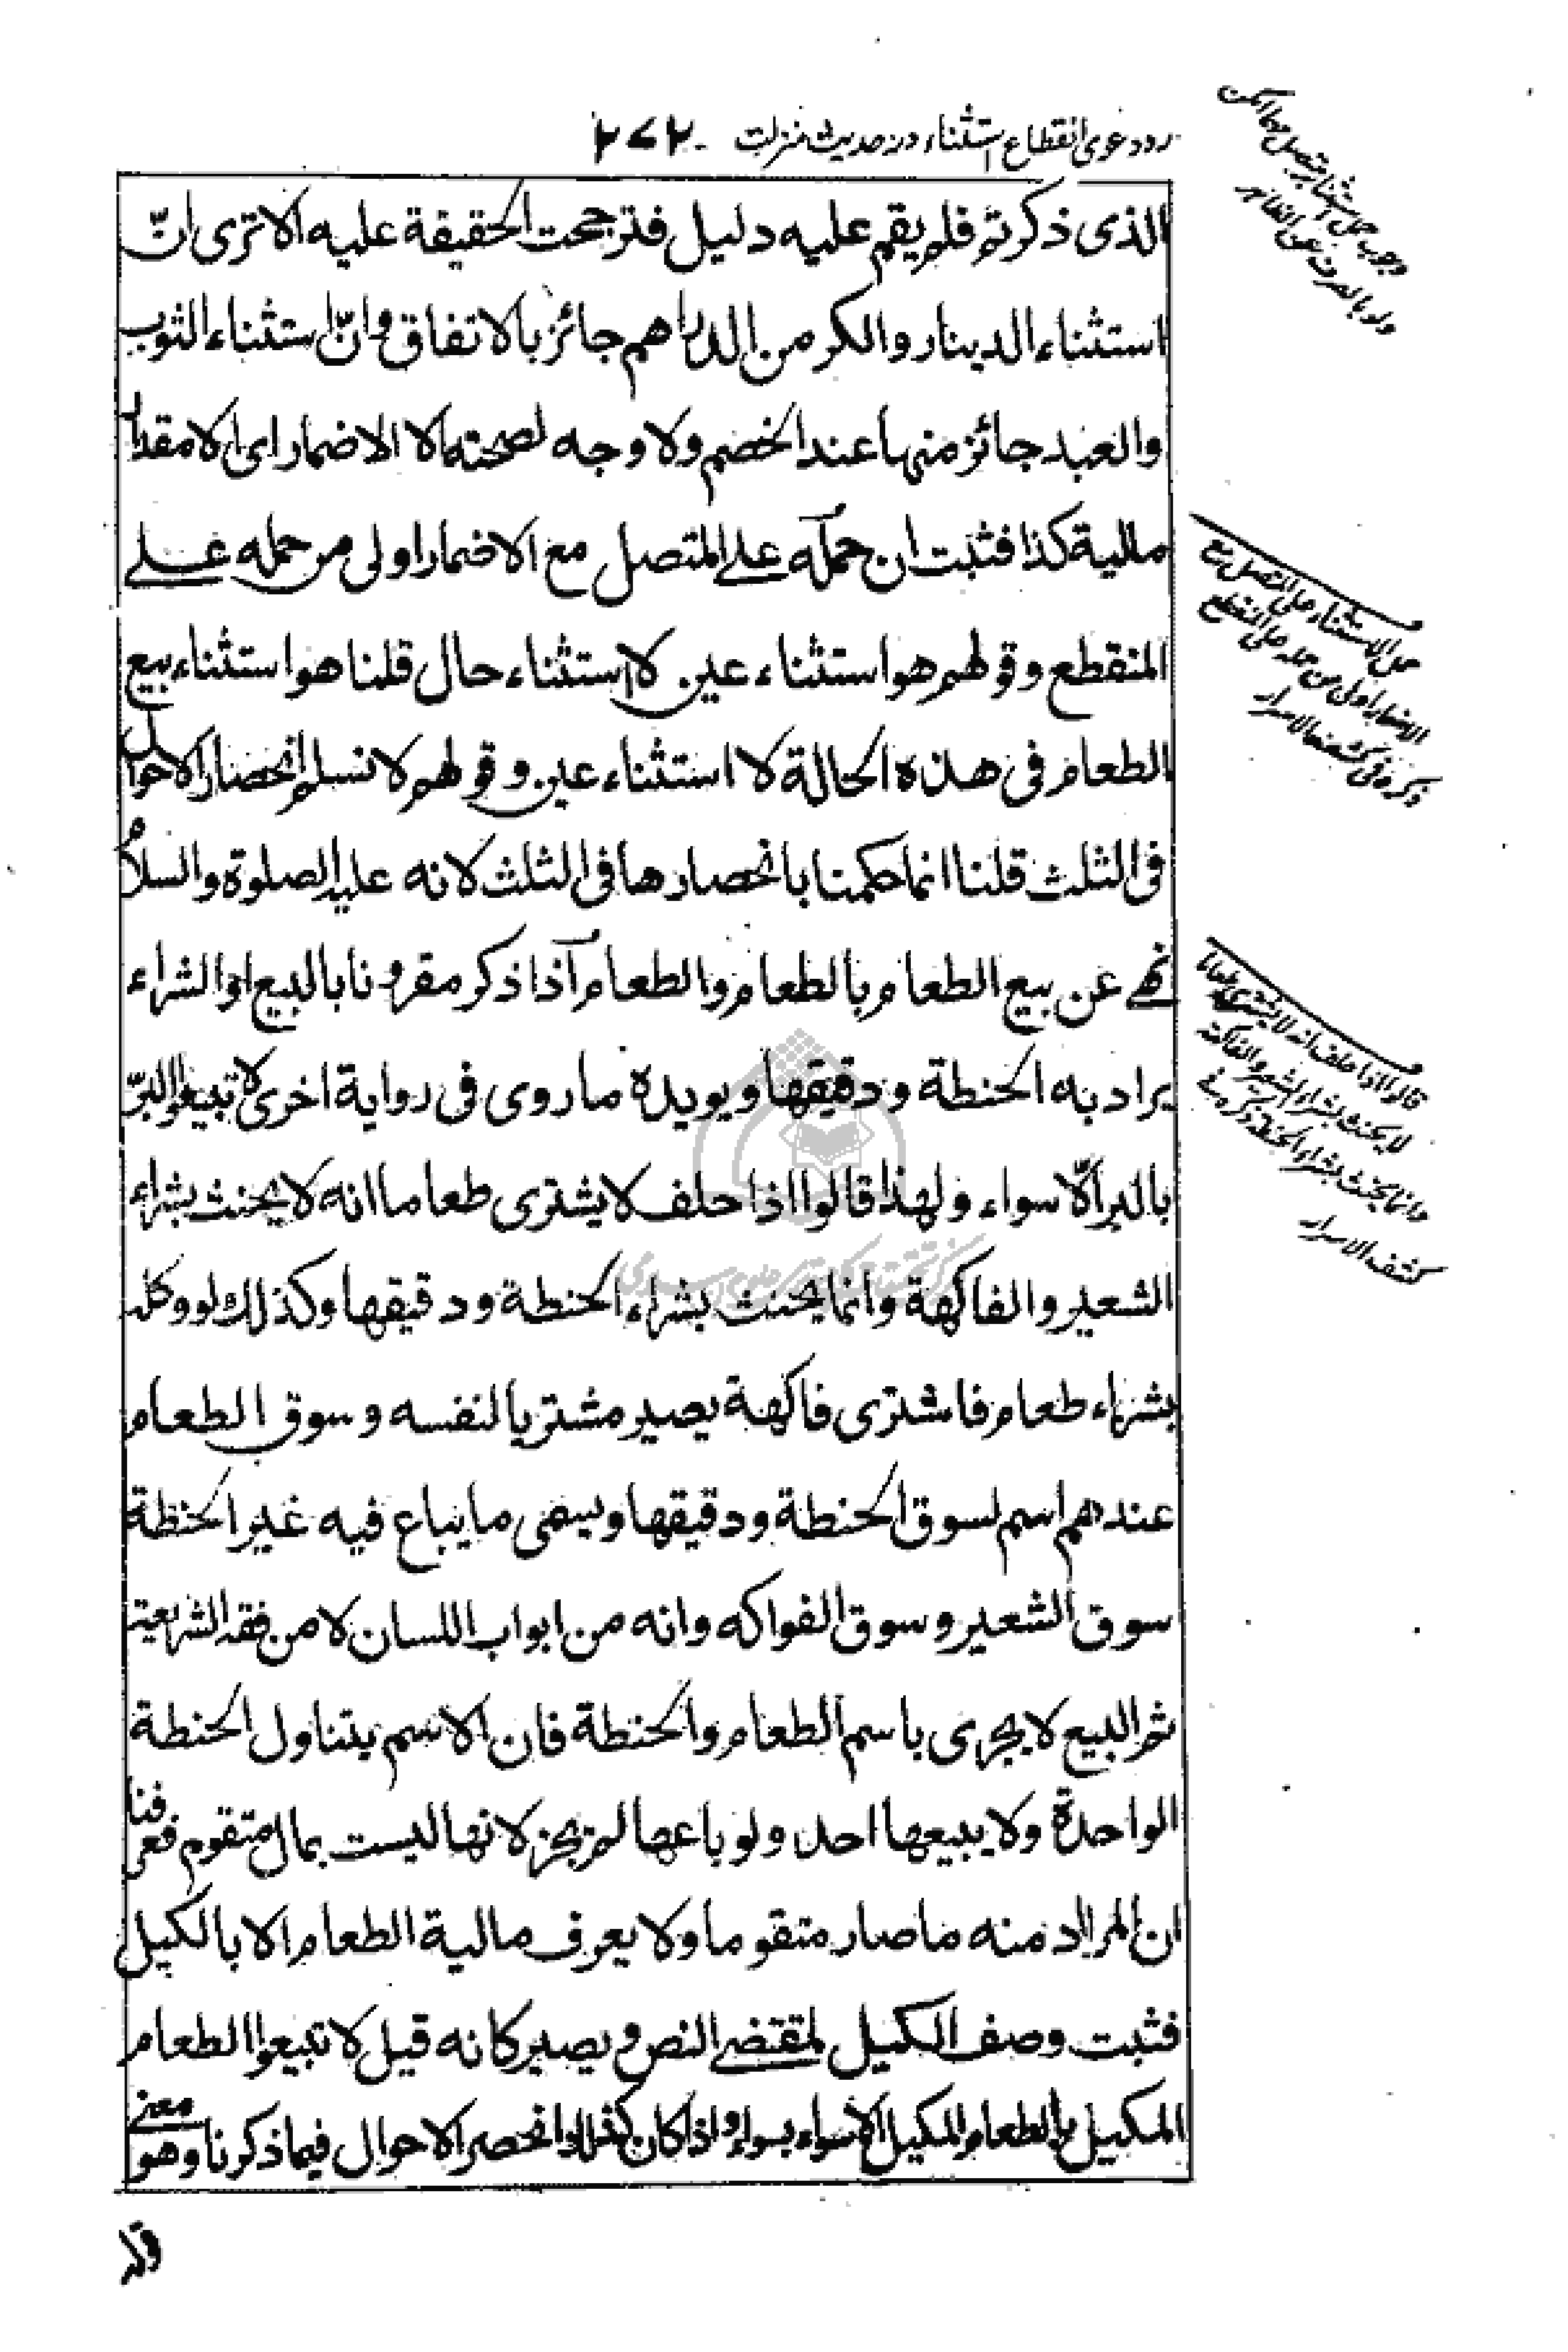 رد دعوی انقطاع استثناء در حدیث منزلت ۲۷۲
الذی ذکرتم فلم یقم علیه دلیل فترجحت الحقیقة علیه الا تری انّ
استثناء الدینار والکر من الدراهم جائز بالاتفاق وانّ استثناء الثوب
والعبد جائز منها عند الخصم ولا وجه لصحته الا الاضمار ای الا مقدار
مالیة کذا فثبت ان حمله علی المتصل مع الاضمار اولی من حمله علی
المنقطع وقولهم هو استثناء عین لا استثناء حال قلنا هو استثناء بیع
الطعام فی هذه الحالة لا استثناء عین وقولهم لا نسلم انحصار الاحوال
فی الثلث قلنا انما حکمنا بانحصارها فی الثلث لانه علیه الصلوة والسلام
نهی عن بیع الطعام بالطعام والطعام اذا ذکر مقرونا بالبیع او الشراء
یراد به الحنطة ودقیقها ویویده ما روی فی روایة اخری لا تبیعوا البرّ
بالبر الّا سواء ولهذا قالوا اذا حلف لا یشتری طعاما انه لا یحنث بشراء
الشعیر والفاکهة وانما یحنث بشراء الحنطة ودقیقها وکذلك لو وکله
بشراء طعام فاشتری فاکهة یصیر مشتریا لنفسه وسوق الطعام
عندهم اسم لسوق الحنطة ودقیقها ویسمی ما یباع فیه غیر الحنطة
سوق الشعیر وسوق الفواکه وانه من ابواب اللسان لا من فقه الشریعة
ثم البیع لا یجری باسم الطعام والحنطة فان الاسم یتناول الحنطة
الواحدة ولا یبیعها احد ولو باعها لم یجز لانها لیست بمال متقوم فعرفنا
ان المراد منه ما صار متقوما ولا یعرف مالیة الطعام الا بالکیل
فثبت وصف الکیل لمقتضی النص ویصیر کانه قیل لا تبیعوا الطعام
المکیل بالطعام المکیل الا سواء بسواء واذا کان کذلك انحصر الاحوال فیما ذکرنا وهو معنی
قوله
وجوب حمل استثناء بر متصل مهما امکن
ولو بالصرف عن الظاهر
حمل الاستثناء علی المتصل مع
الاضمار اولی من حمله علی المنقطع
ذکره فی کشف الاسرار
قالوا اذا حلف انه لا یشتری طعاما
لا یحنث بشراء الشعیر والفاکهة
وانما یحنث بشراء الحنطة ذکره فی
کشف الاسرار